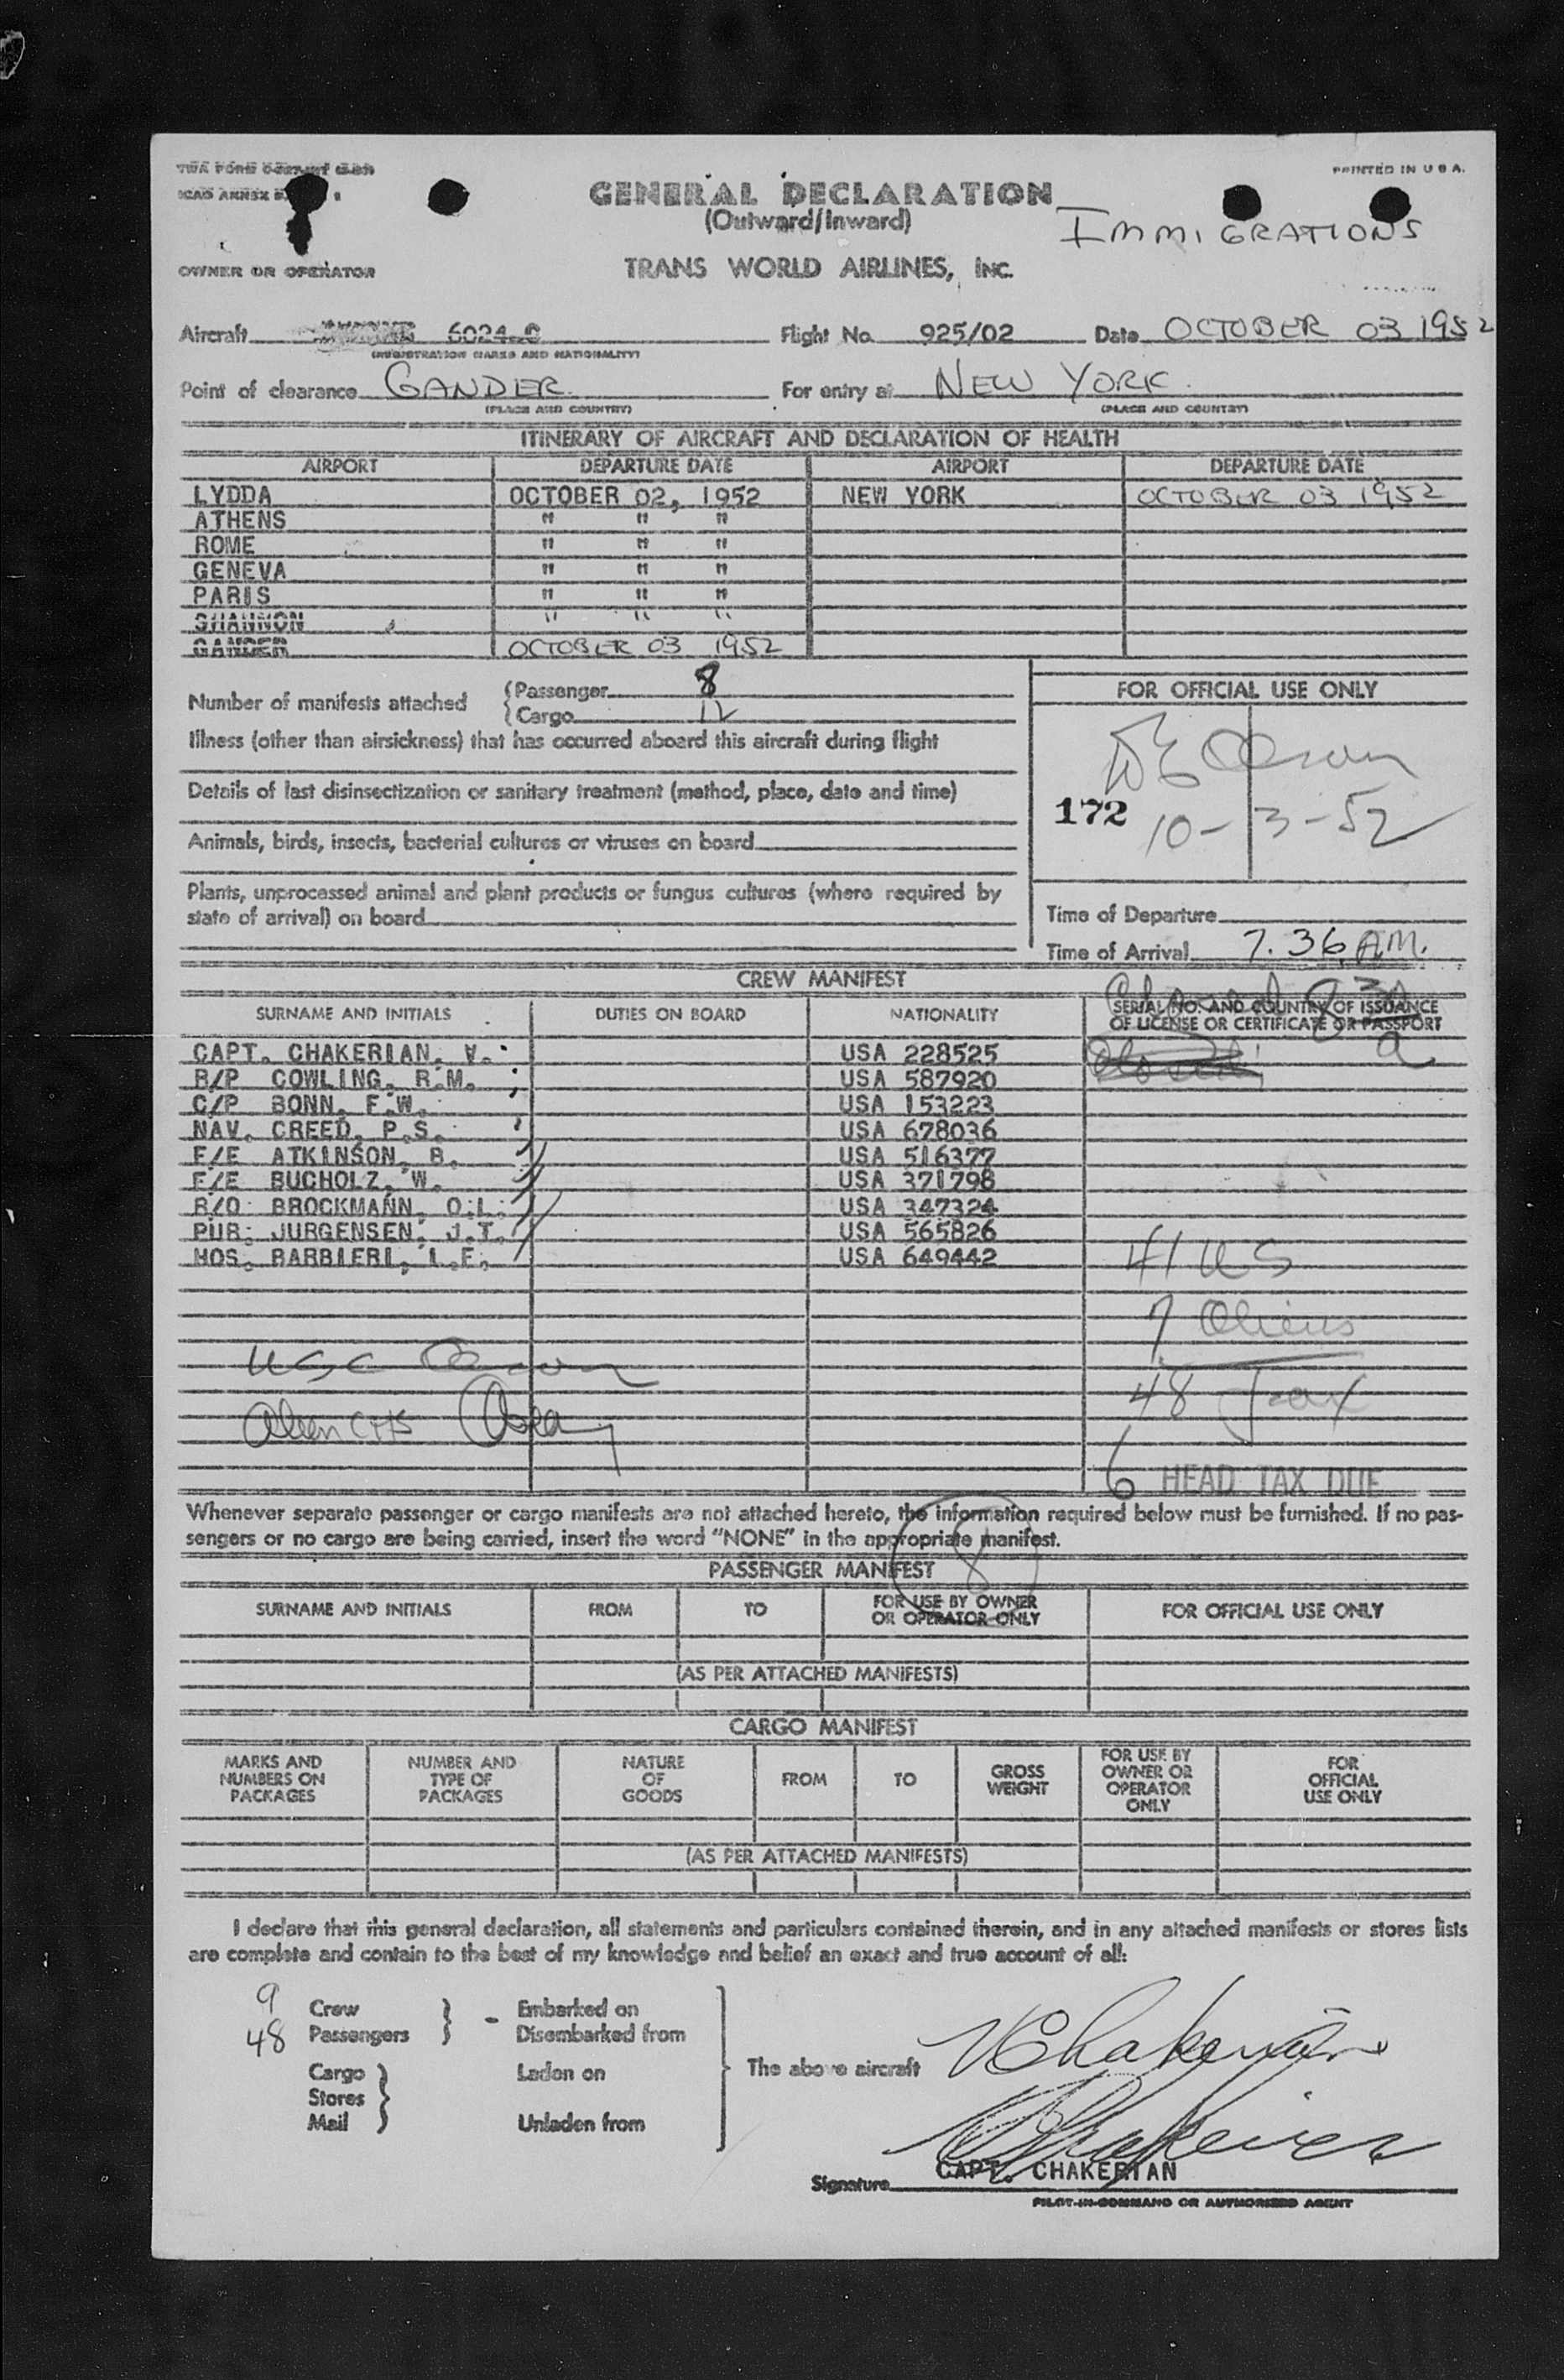 PRINTED IN U S A.
GENERAL DECLARATION
(Outward/Inward)
IMMIGRATIONS
OWNER OR OPERATOR
TRANS WORLD AIRLINES, INC.
Aircraft 6024-C Flight No. 925/02 Date OCTOBER 03 1952
(REGISTRATION MARKS AND NATIONALITY)
Point of clearance GANDER For entry at NEW YORK
(PLACE AND COUNTRY) (PLACE AND COUNTRY)
ITINERARY OF AIRCRAFT AND DECLARATION OF HEALTH
AIRPORT DEPARTURE DATE AIRPORT DEPARTURE DATE
LYDDA OCTOBER 02, 1952 NEW YORK OCTOBER 03 1952
ATHENS " " "
ROME " " "
GENEVA " " "
PARIS " " "
SHANNON " " "
GANDER OCTOBER 03 1952
Number of manifests attached (Passenger 8
(Cargo 12
FOR OFFICIAL USE ONLY
Illness (other than airsickness) that has occurred aboard this aircraft during flight
Details of last disinsectization or sanitary treatment (method, place, date and time)
172 10-3-52
Animals, birds, insects, bacterial cultures or viruses on board
Plants, unprocessed animal and plant products or fungus cultures (where required by
state of arrival) on board
Time of Departure
Time of Arrival 7.36 A.M.
CREW MANIFEST
SURNAME AND INITIALS DUTIES ON BOARD NATIONALITY SERIAL NO. AND COUNTRY OF ISSUANCE
OF LICENSE OR CERTIFICATE OR PASSPORT
CAPT. CHAKERIAN, V. USA 228525
R/P COWLING, R.M. USA 587920
C/P BONN, F.W. USA 153223
NAV. CREED, P.S. USA 678036
F/E ATKINSON, B. USA 516377
F/E BUCHOLZ, W. USA 371798
R/O BROCKMANN, O.L. USA 347324
PUR. JURGENSEN, J.T. USA 565826
HOS. BARBIERI, I.F. USA 649442
41 US
7 Aliens
48
6 HEAD TAX DUE
Whenever separate passenger or cargo manifests are not attached hereto, the information required below must be furnished. If no pas-
sengers or no cargo are being carried, insert the word "NONE" in the appropriate manifest.
8
PASSENGER MANIFEST
SURNAME AND INITIALS FROM TO FOR USE BY OWNER
OR OPERATOR ONLY FOR OFFICIAL USE ONLY
(AS PER ATTACHED MANIFESTS)
CARGO MANIFEST
MARKS AND
NUMBERS ON
PACKAGES NUMBER AND
TYPE OF
PACKAGES NATURE
OF
GOODS FROM TO GROSS
WEIGHT FOR USE BY
OWNER OR
OPERATOR
ONLY FOR
OFFICIAL
USE ONLY
(AS PER ATTACHED MANIFESTS)
I declare that this general declaration, all statements and particulars contained therein, and in any attached manifests or stores lists
are complete and contain to the best of my knowledge and belief an exact and true account of all:
9 Crew Embarked on
48 Passengers Disembarked from
Cargo Laden on
Stores
Mail Unladen from
The above aircraft VChakerian
Signature CAPT. CHAKERIAN
PILOT-IN-COMMAND OR AUTHORIZED AGENT